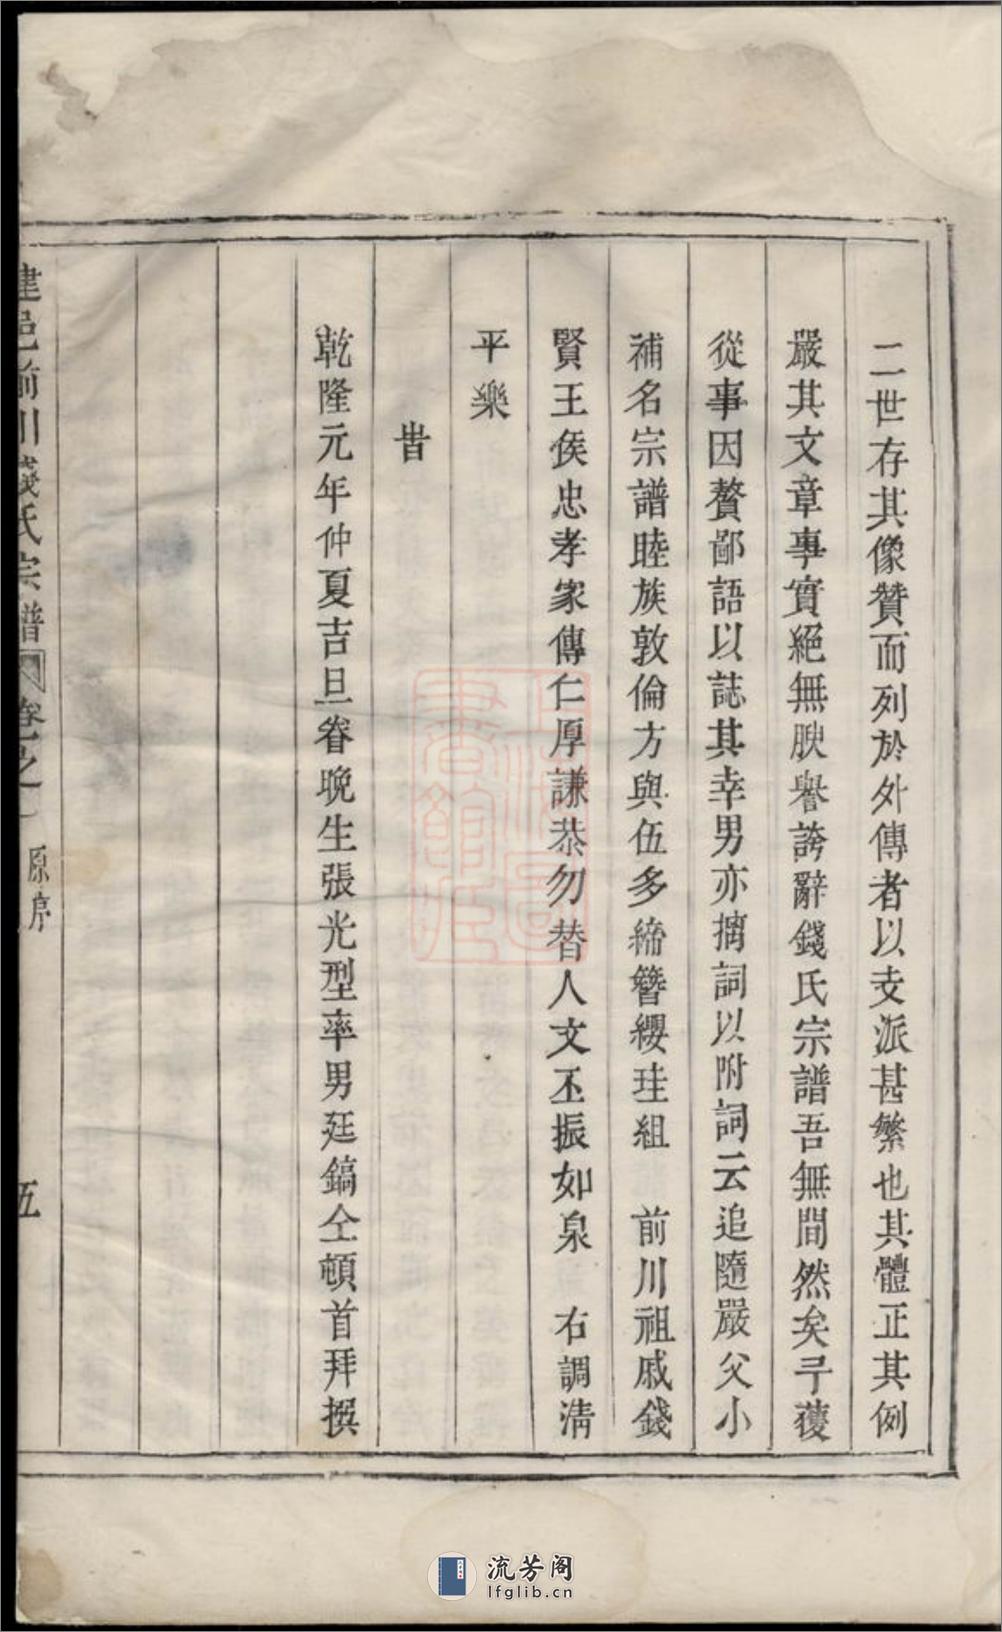 二世存其像贊而列於外傳者以支派甚繁也其體正其例
嚴其文章事實絕無腴譽誇辭錢氏宗譜吾無間然矣予獲
從事因贅鄙語以誌其幸男亦摛詞以附詞云追隨嚴父小
補名宗譜睦族敦倫方與伍多締簪纓珪組　前川祖戚錢
賢王侯忠孝家傳仁厚謙恭勿替人文丕振如泉　右調清
平樂
旹
乾隆元年仲夏吉旦眷晚生張光型率男廷鎬仝頓首拜撰
建邑前川錢氏宗譜　卷之一　原序　五
流芳阁
lfglib.cn